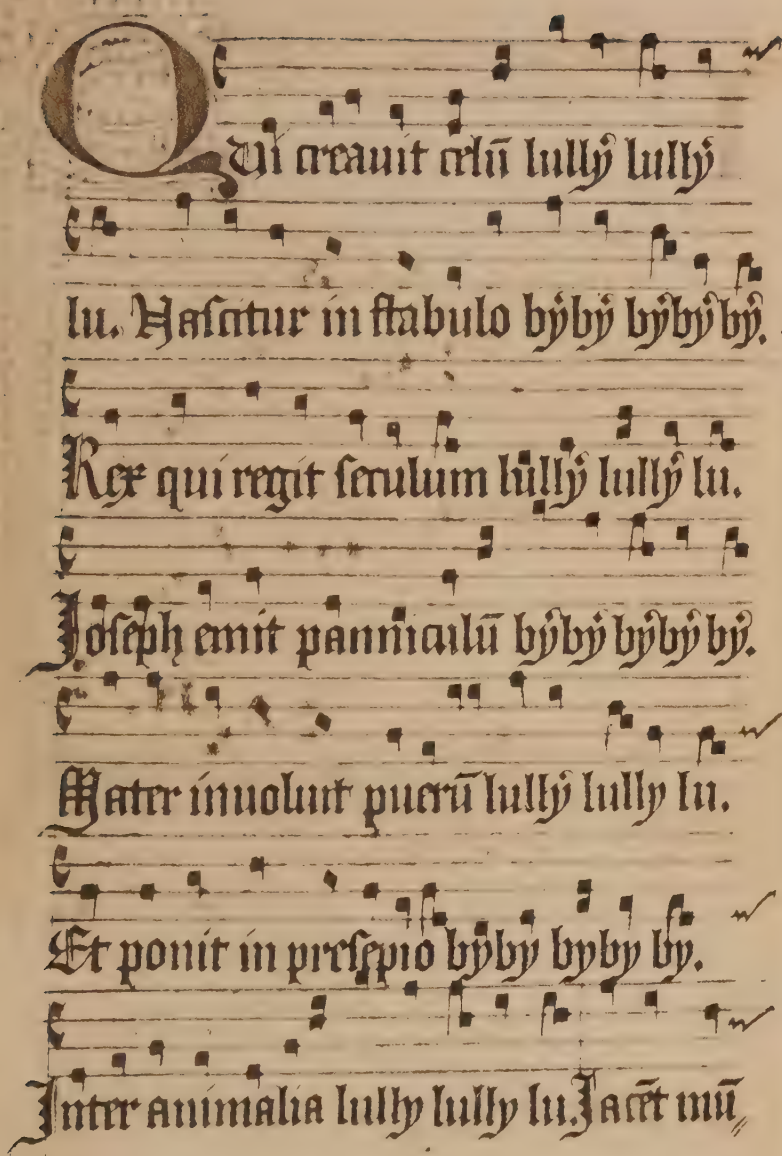 QUi creauit celū lullẏ lullẏ
lu. Naſcitur in ſtabulo bẏbẏ bẏbẏ bẏ.
Rex qui regit ſeculum lullẏ lullẏ lu.
Joſeph emit panniculū bẏbẏ bẏbẏ bẏ.
Mater inuoluit puerū lullẏ lully lu.
Et ponit in preſepio bẏbẏ byby by.
Inter animalia lully lully lu. Jacēt mū„